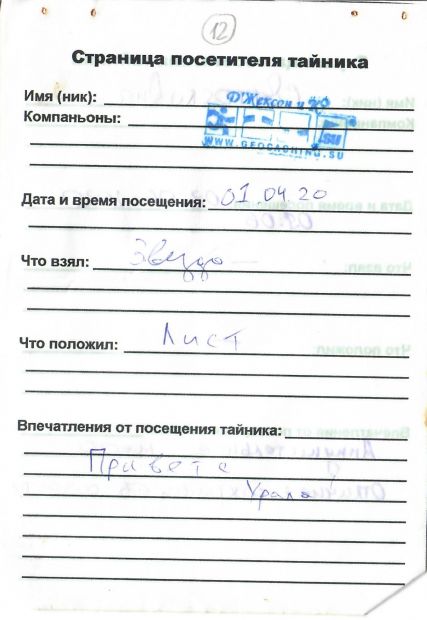 12
Страница посетителя тайника
Имя (ник):
Д'Жексон и Ко
Компаньоны:
.SU
WWW.GEOCACHING.SU
Дата и время посещения: 01 04.20
Что взял:
Что положил: Лист
Впечатления от посещения тайника:
Привет с
Урала